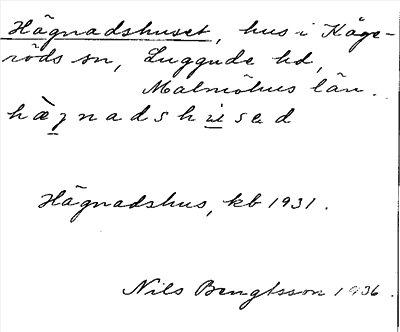 Hägnadshuset, hus i Kåge-
röds sn, Luggude hd,
Malmöhus län.
hägnadshused
Hägnadshus, kb 1931.
Nils Bengtsson 1936.